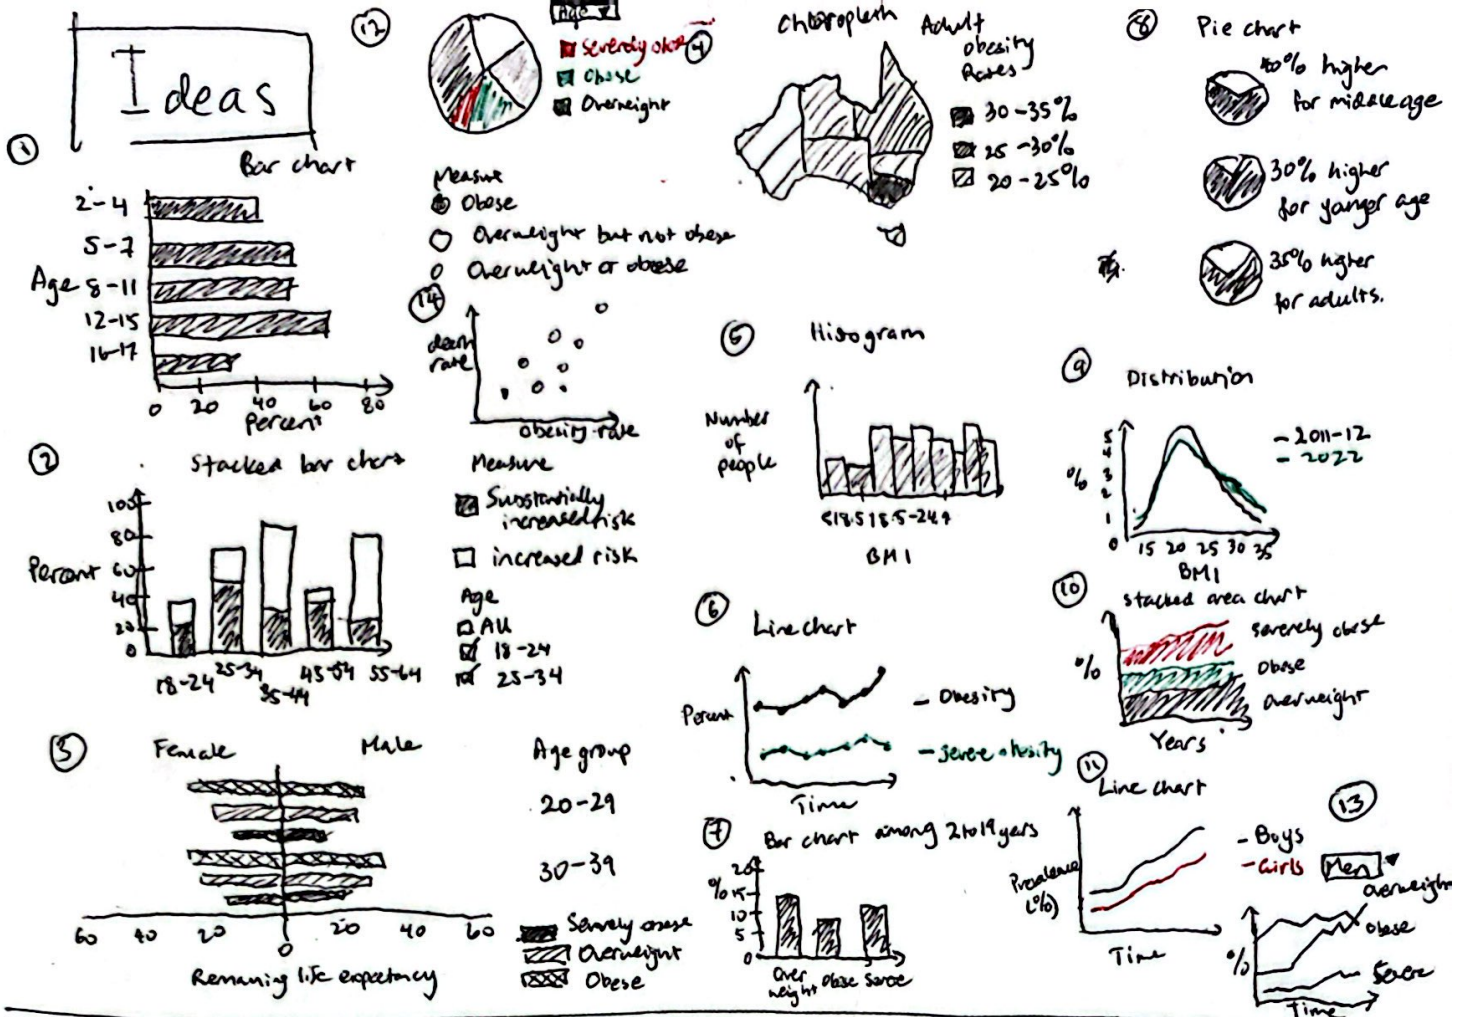 Ideas
①
Bar chart
2-4
5-7
Age 8-11
12-15
16-17
0 20 40 60 80
Percent
②
Stacked bar chart
100
80
Percent 60
40
20
0
18-24 25-34 35-44 45-54 55-64
Measure
Substantially
increased risk
increased risk
Age
All
18-24
25-34
③
Female Male
Age group
20-29
30-39
60 40 20 0 20 40 60
Remaning life expectancy
Severely obese
Overweight
Obese
⑫
Age ▼
Severely obese
Obese
Overweight
Measure
Obese
Overweight but not obese
Overweight or obese
⑭
death
rate
obesity rate
④
Chloropleth
Adult
obesity
Rates
30-35%
25-30%
20-25%
⑤
Histogram
Number
of
people
<18.5 18.5-24.9
BMI
⑥
Line chart
Percent
- Obesity
- severe obesity
Time
⑦
Bar chart among 2 to 19 years
20
% 15
10
5
0
Over
weight Obese Severe
⑧
Pie chart
40% higher
for middle age
30% higher
for yonger age
35% higher
for adults.
⑨
Distribution
5
4
% 3
2
1
0
15 20 25 30 35
BMI
- 2011-12
- 2022
⑩
Stacked area chart
%
Severely obese
Obese
overweight
Years
⑪
Line chart
Prevalence
(%)
- Boys
- Girls
Time
⑬
Men ▼
overweight
obese
Severe
%
Time